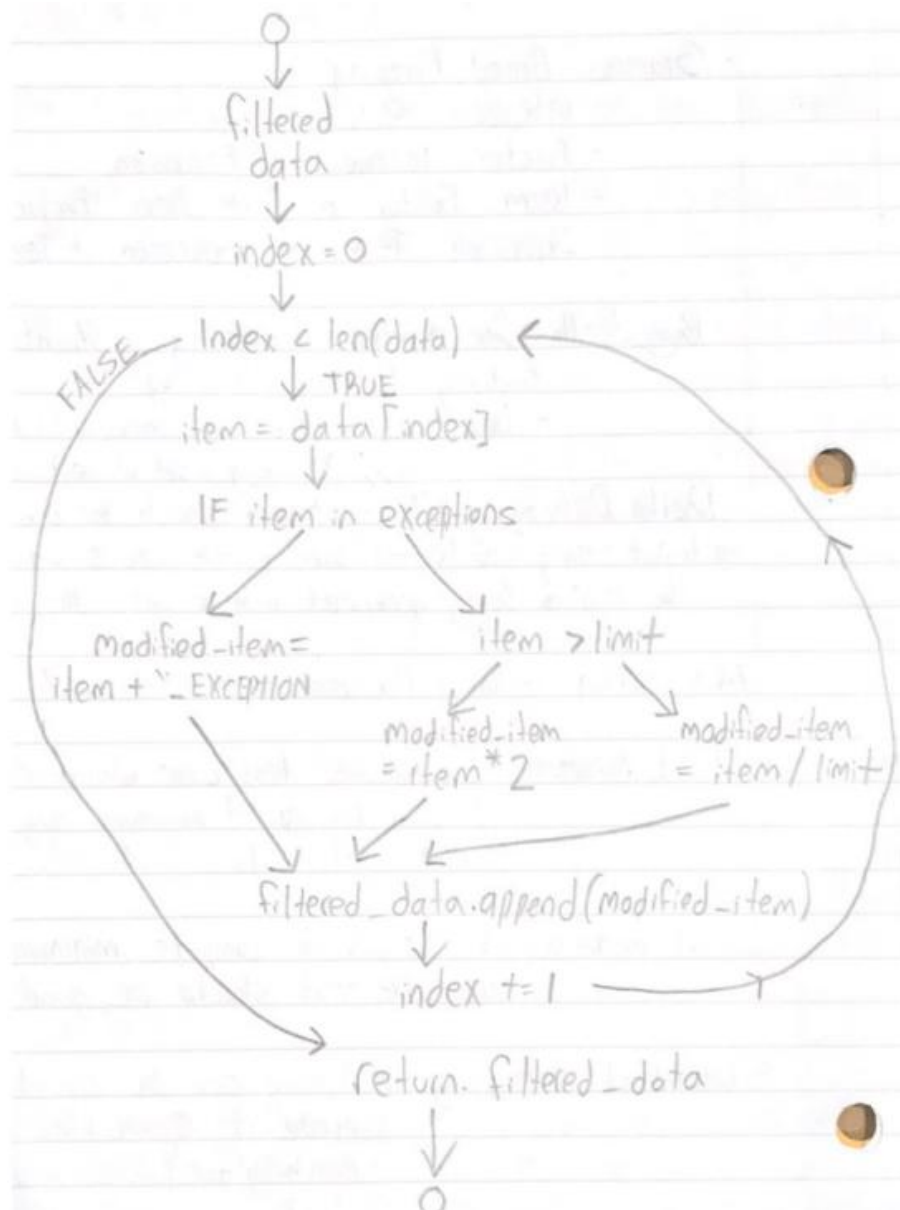 filtered
data
index = 0
Index < len(data)
FALSE
TRUE
item = data [index]
IF item in exceptions
modified_item =
item + "_EXCEPTION
item > limit
modified_item
= item * 2
modified_item
= item / limit
filtered_data.append(modified_item)
index += 1
return. filtered_data